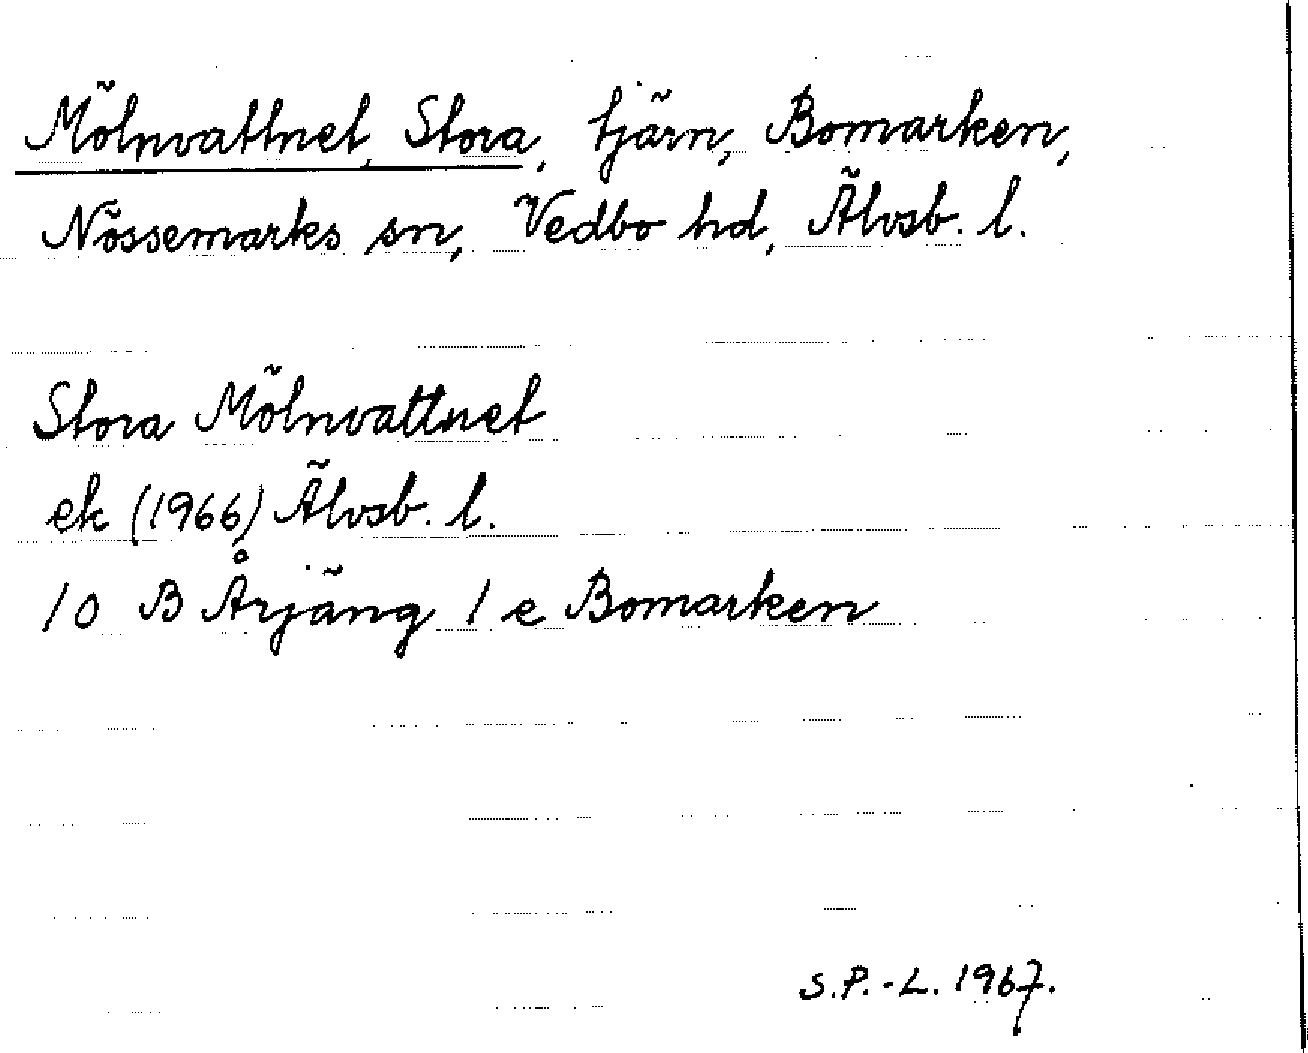 Mölnvattnet, Stora, tjärn, Bomarken,
Nössemarks sn, Vedbo hd, Älvsb. l.
Stora Mölnvattnet
ek (1966) Älvsb. l.
10 B Årjäng 1 e Bomarken
S.P.-L. 1967.